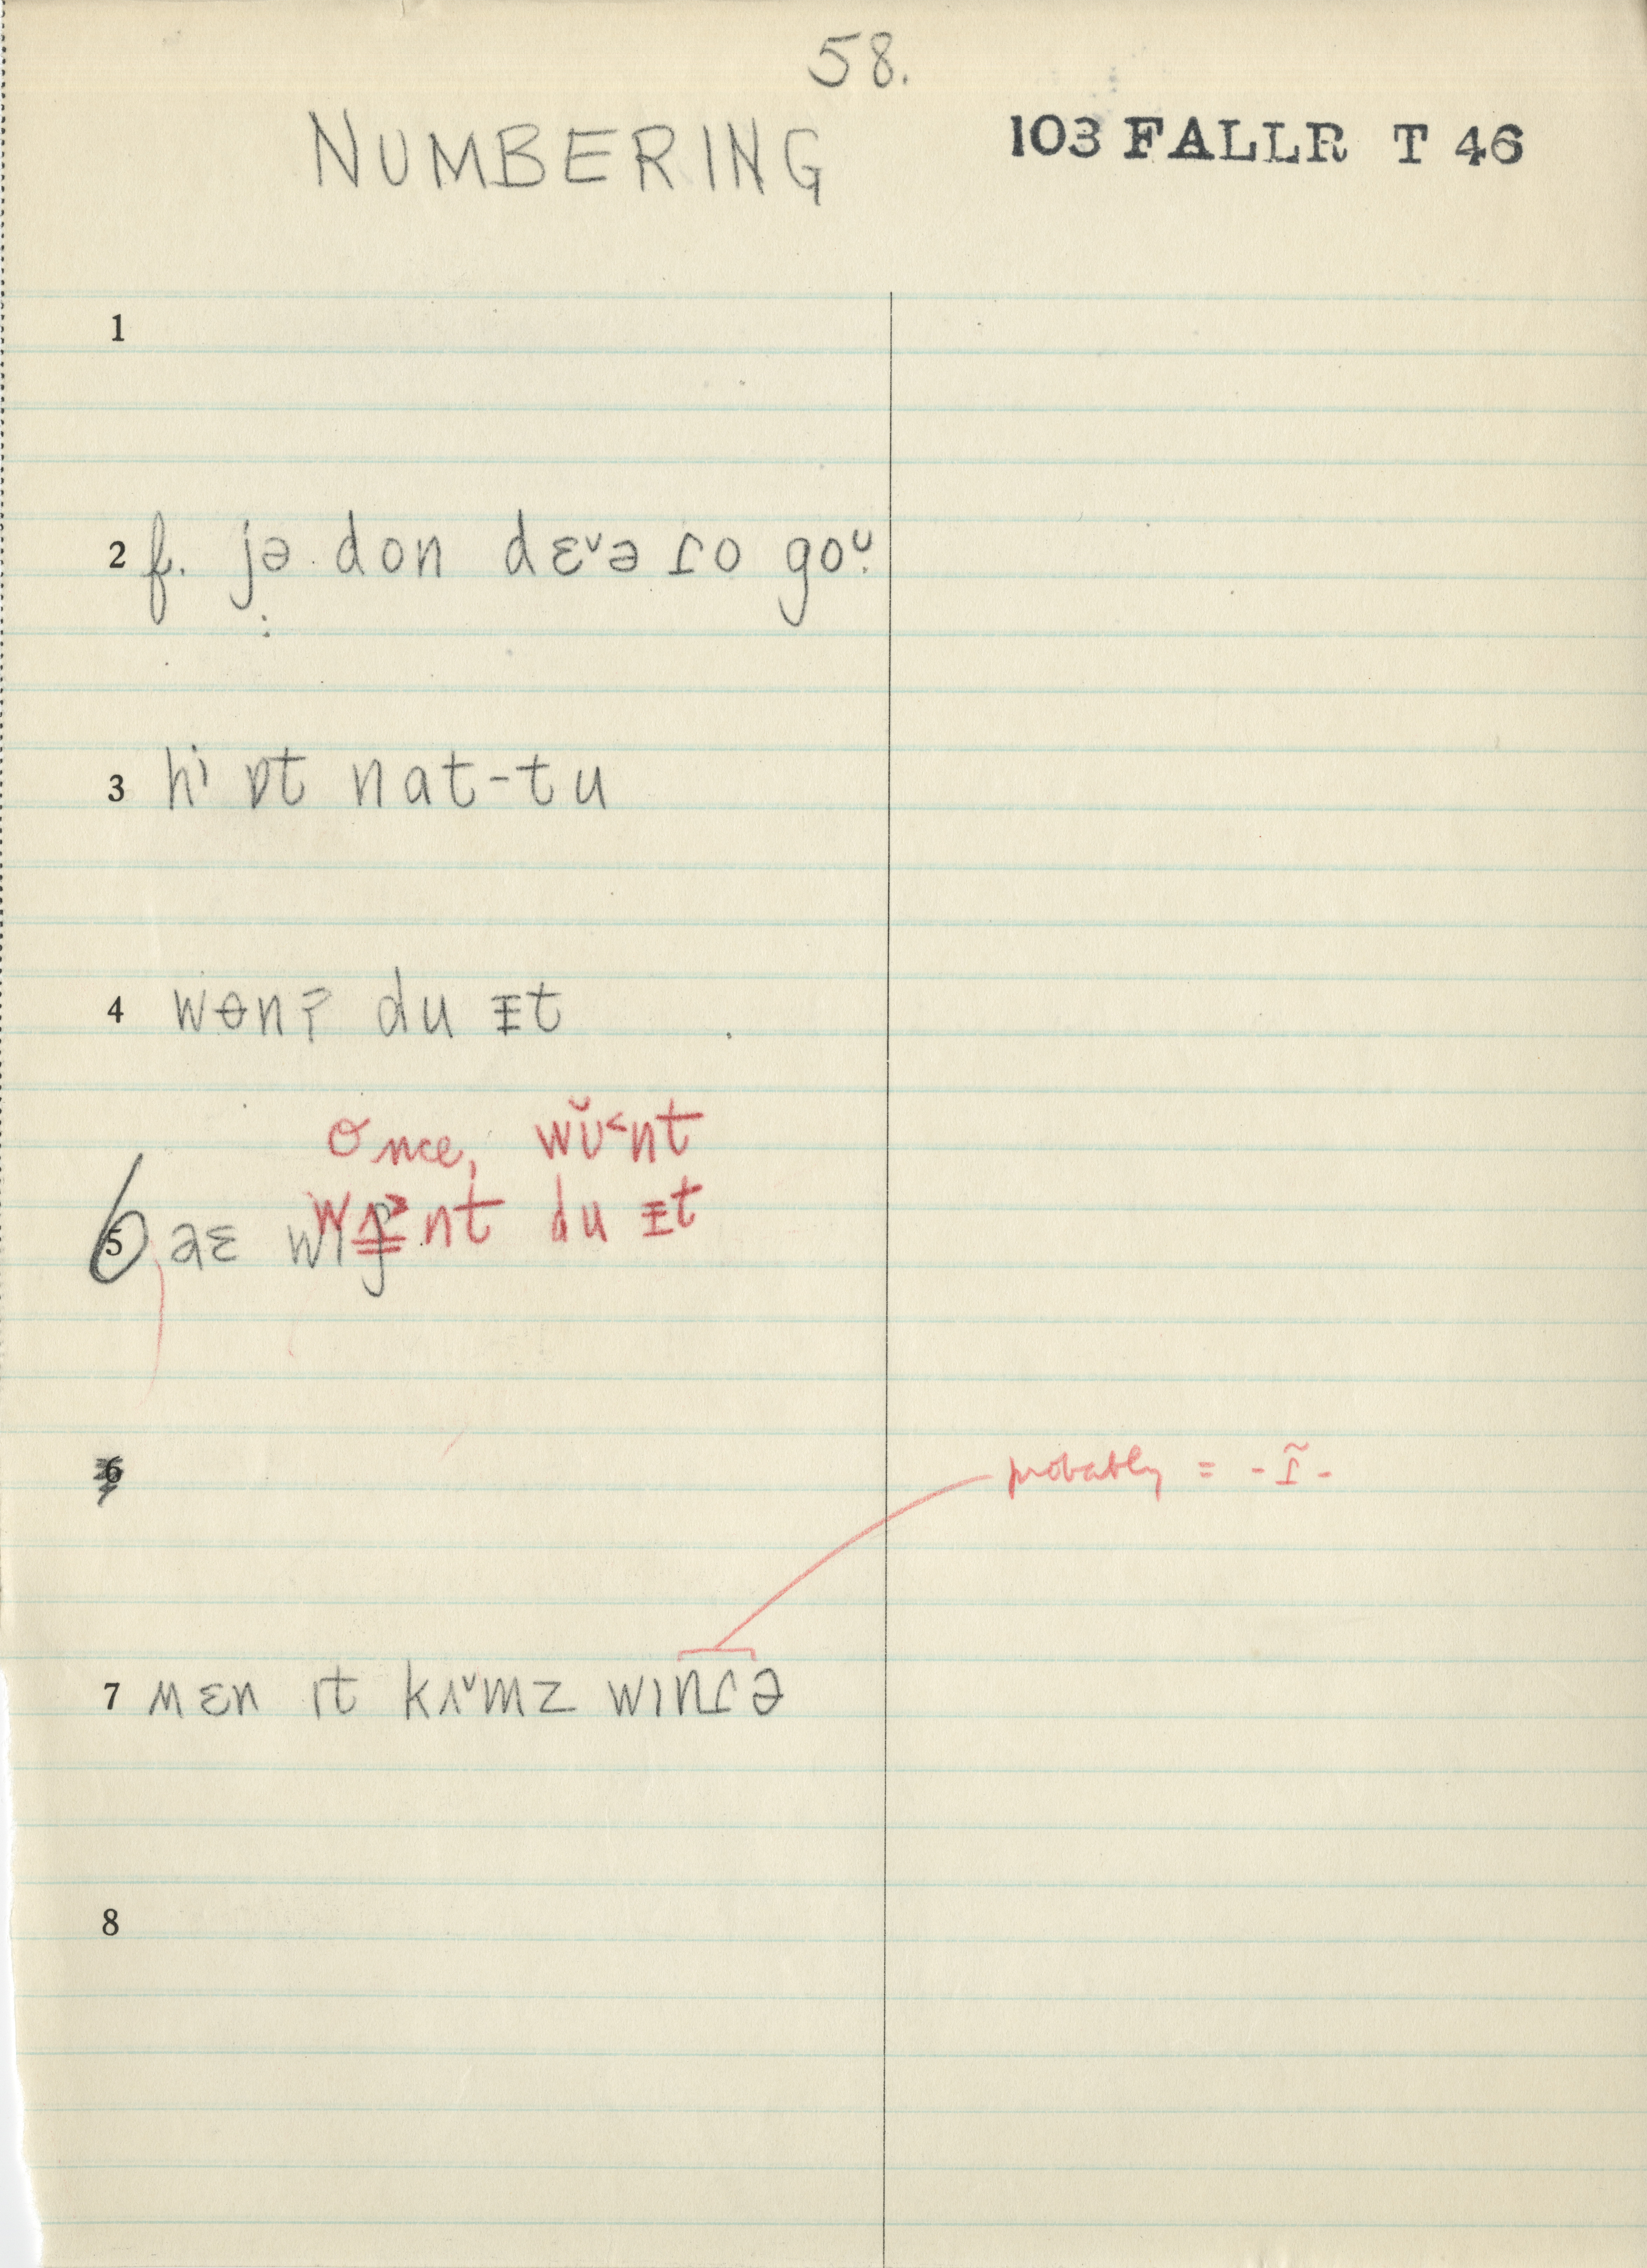 58.
NUMBERING 103 FALLR T 46
1
2 f. jə don dɛ˅ə ɾo goᴜ
3 hi ɒt nat-tu
4 wɵnʔ du ᵻt
once, wŭ˂nt
nt du ᵻt
5 aɛ wɪʃ
6
probably = -ɾ̃-
7 ʍɛn ɪt kʌ˅mz wɪnɾə
8